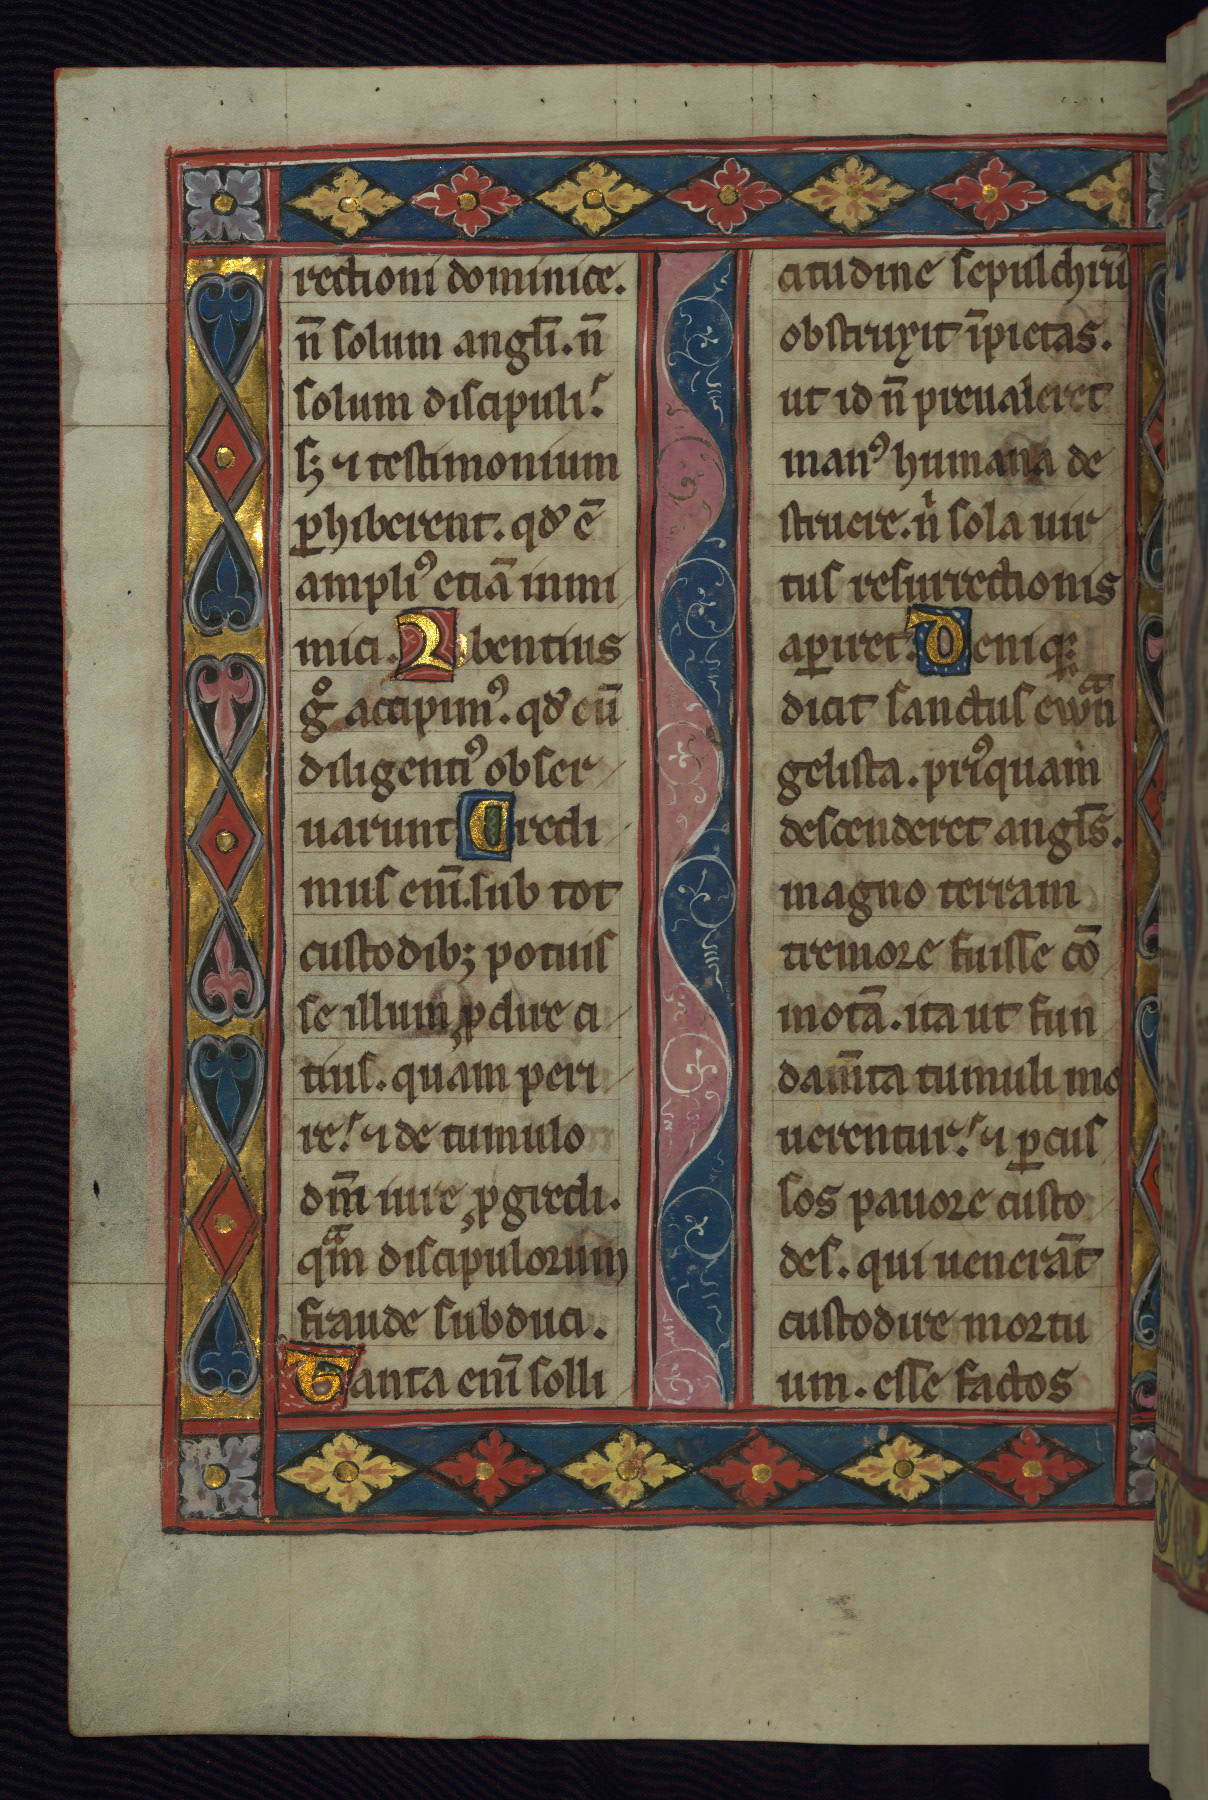 rectioni dominice.
n̄ solum angl̄i. n̄
solum discipuli.
sꝫ ⁊ testimonium
ꝑhiberent. qd̓ ē
ampliꝰ etiā inimi
mici. Libentius
gͦ accipimꝰ. qd̓ eū
diligentiꝰ obser
uarunt Credi
mus eni̅. sub tot
custodibꝫ potuis
se illum ꝓdire ci
tius. quam peri
re. ⁊ de tumulo
dn̄m iure ꝓgredi.
qͣm discipulorum
fraude subduci.
Tanta eni̅ solli
citudine sepulchrū
obstruxit īpietas.
ut id n̄ preualeret
manꝰ humana de
struere. nͥ sola uir
tus resurrectionis
aꝑiret. Deniqꝫ
dicit sanctus ewͣn
gelista. priꝰquam
descenderet angl̄s.
magno terram
tremore fuisse cō
motā. ita ut fun
dam̄ta tumuli mo
uerentur. ⁊ ꝑcus
sos pauore custo
des. qui uenerāt
custodire mortu
um. esse factos